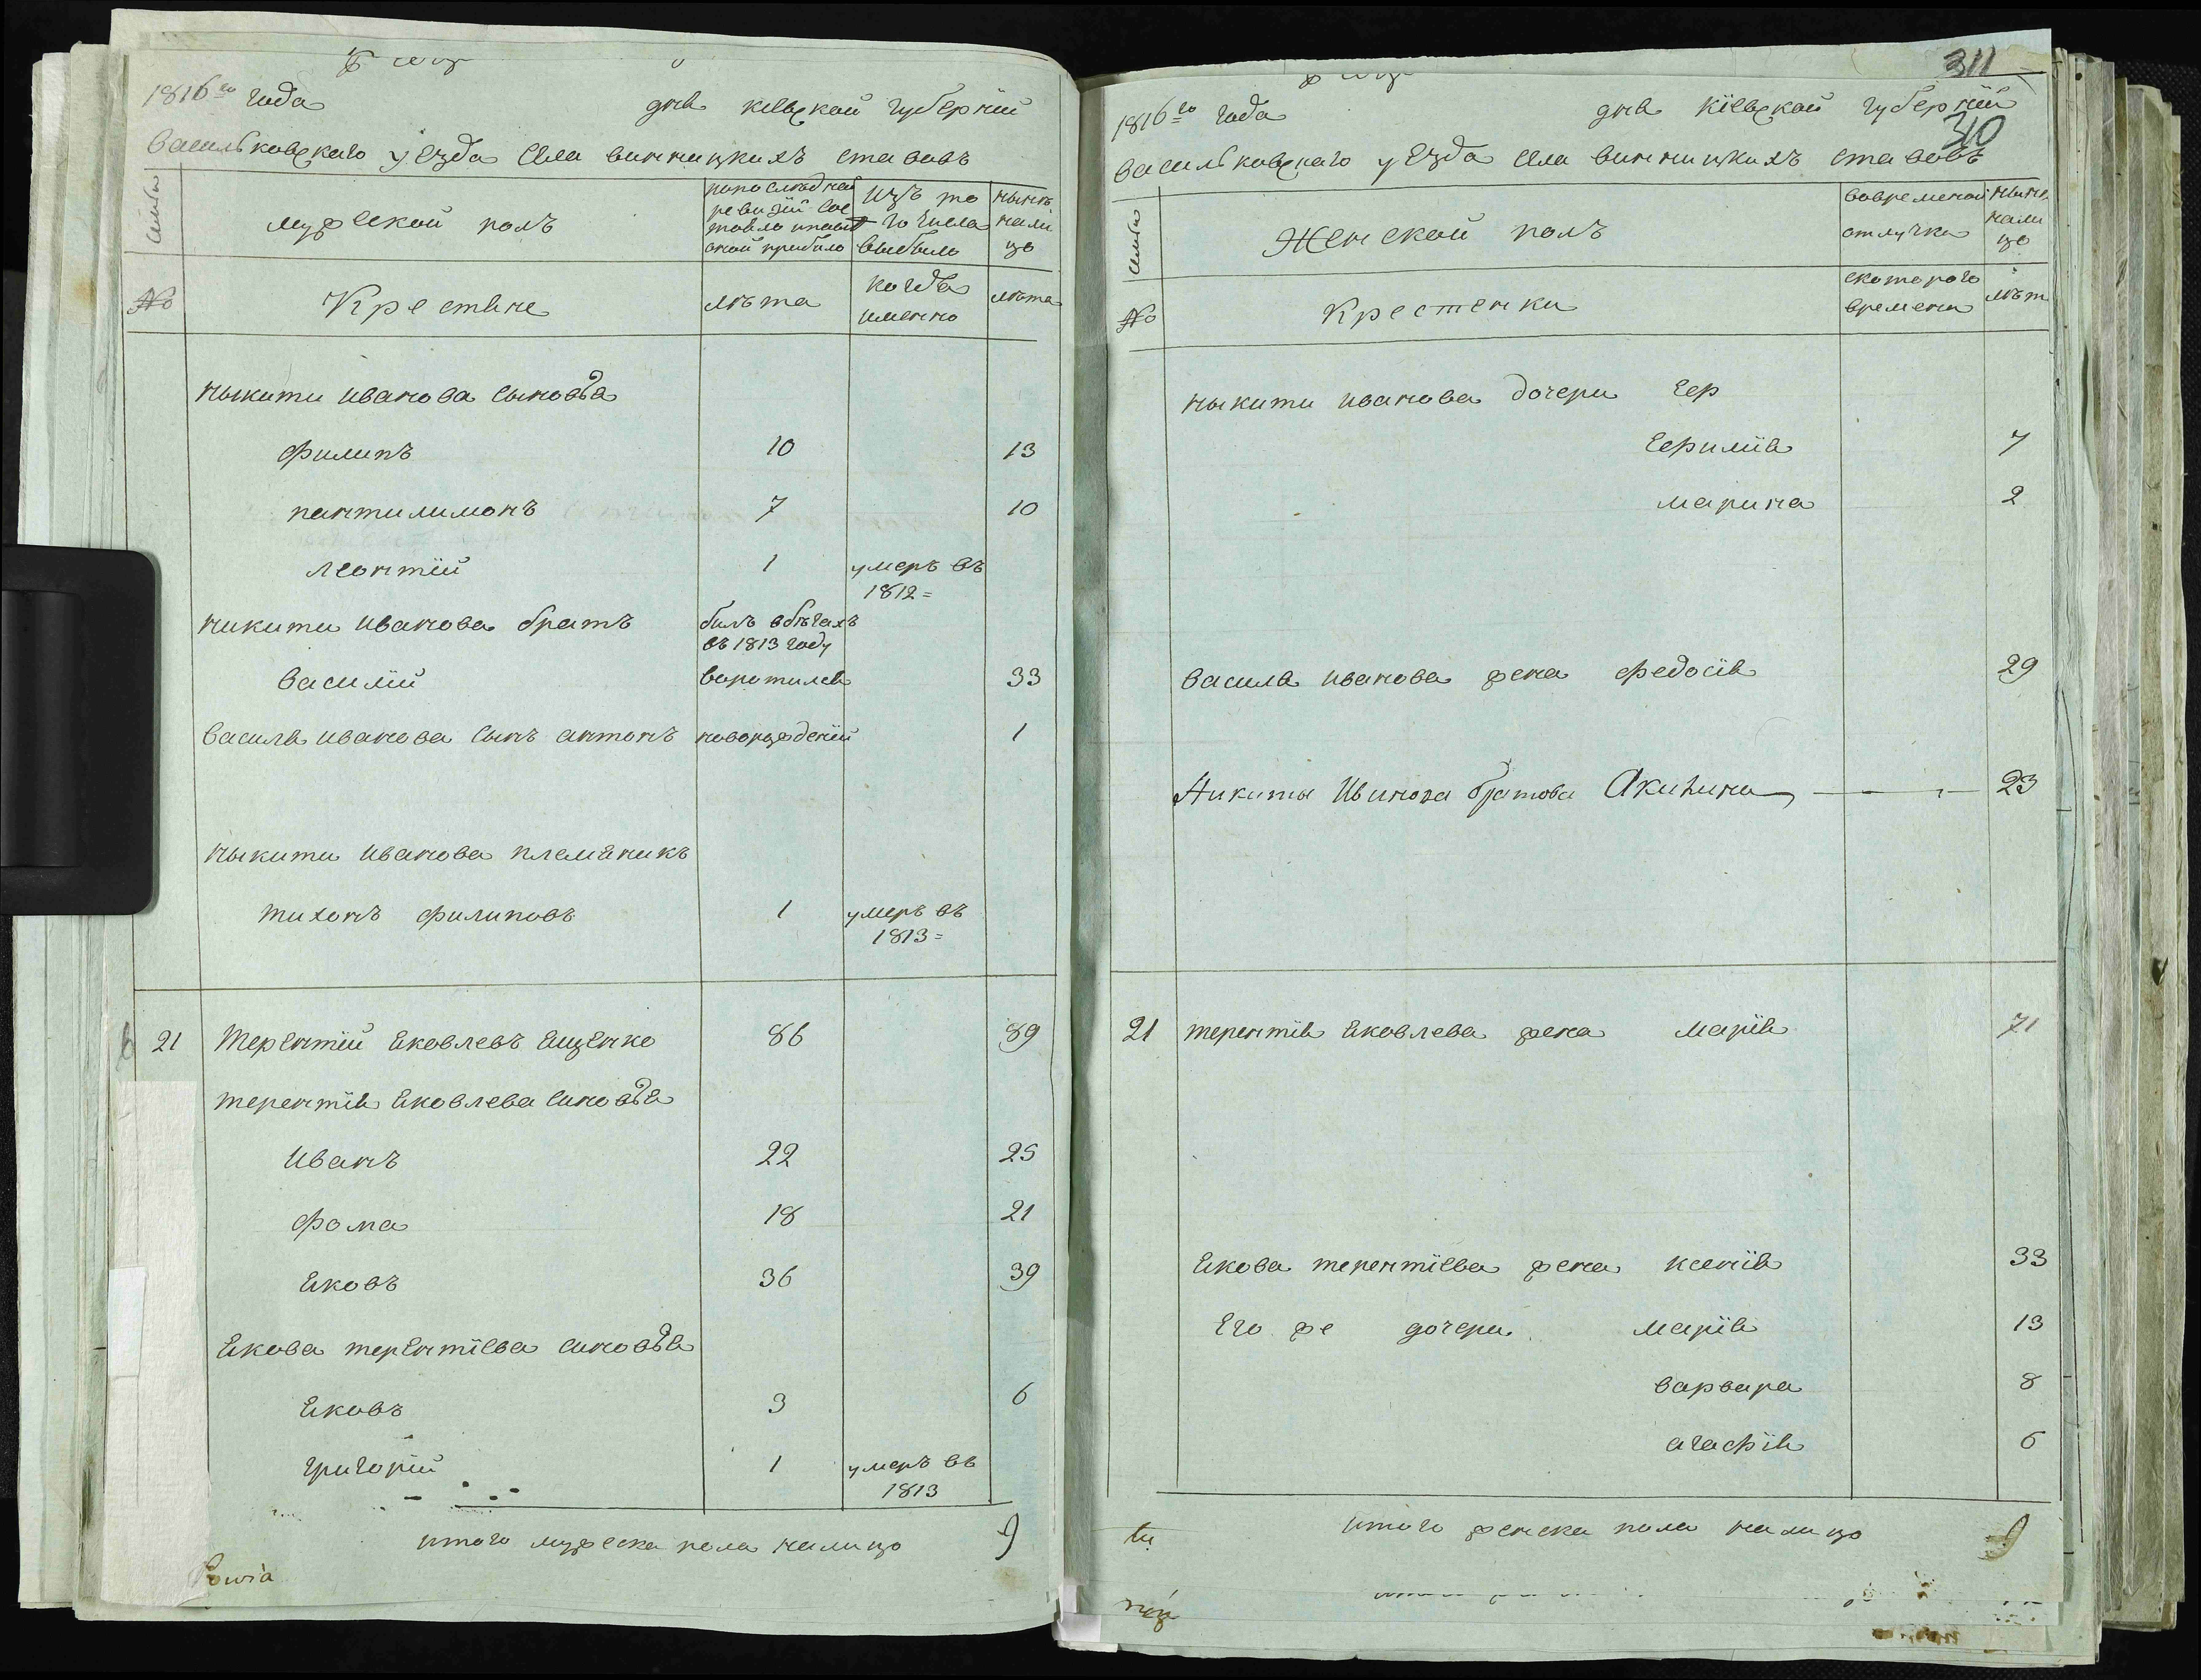 1816го года дня киевской губернии
васильковского уезда села винницкихъ ставовъ
семьи
мужеской полъ
по последней ревизии состояло и после оной прибыло
изъ того числа выбыло
ныне на лицо
№
Крестяне
лѣта
когда именно
лѣта
никити иванова сыновья
филипъ 10 13
пантилимонъ 7 10
леонтій 1 умеръ въ 1812=
никити иванова братъ билъ вбѣгахъ въ 1813 году
василій воротился 33
василя иванова сынъ антонъ новорожденій 1
никити иванова племяникъ
тихонъ филиповъ 1 умеръ въ 1813=
21 Терентій яковлевъ ященко 86 89
терентія яковлева синовья
иванъ 22 25
фома 18 21
яковъ 36 39
якова терентіева синовья
яковъ 3 6
григорій 1 умеръ въ 1813
итого мужеска пола налицо 9
311
310
1816го года дня кіевской губерніи
васильковского уезда села винницкихъ ставовъ
семьи
Женской полъ
вовременой отлучке
ныне на лицо
№
Крестянки
с которого времени
лѣт
никити иванова дочери Еф
Ефимія 7
марина 2
василя иванова жена федосія 29
Никиты Иванова братова Акилина 23
21 терентія яковлева жена марія 71
якова терентіева жена ксенія 33
его же дочери марія 13
варвара 8
агафія 6
итого женска пола налицо 9